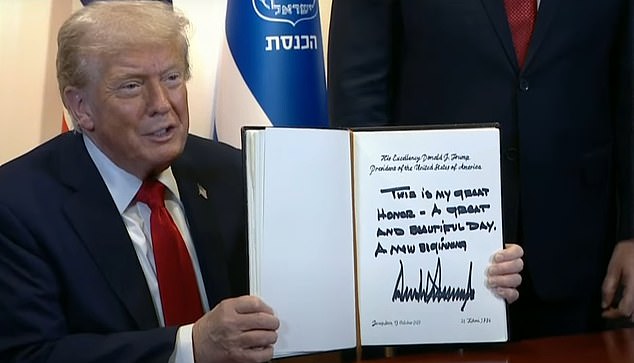 ישראל
הכנסת
His Excellency Donald J. Trump
President of the United States of America
THIS IS MY GREAT
HONOR - A GREAT
AND BEAUTIFUL DAY.
A NEW BEGINNING
Jerusalem, 13 October